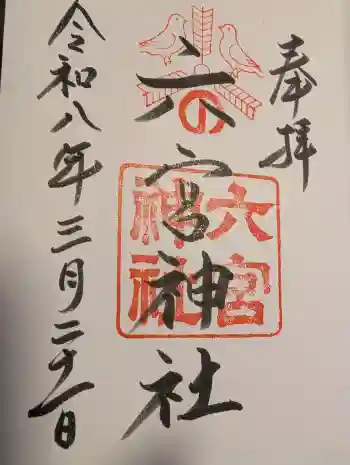 奉拝
六之宮神社
六宮
神社
令和八年三月二十一日